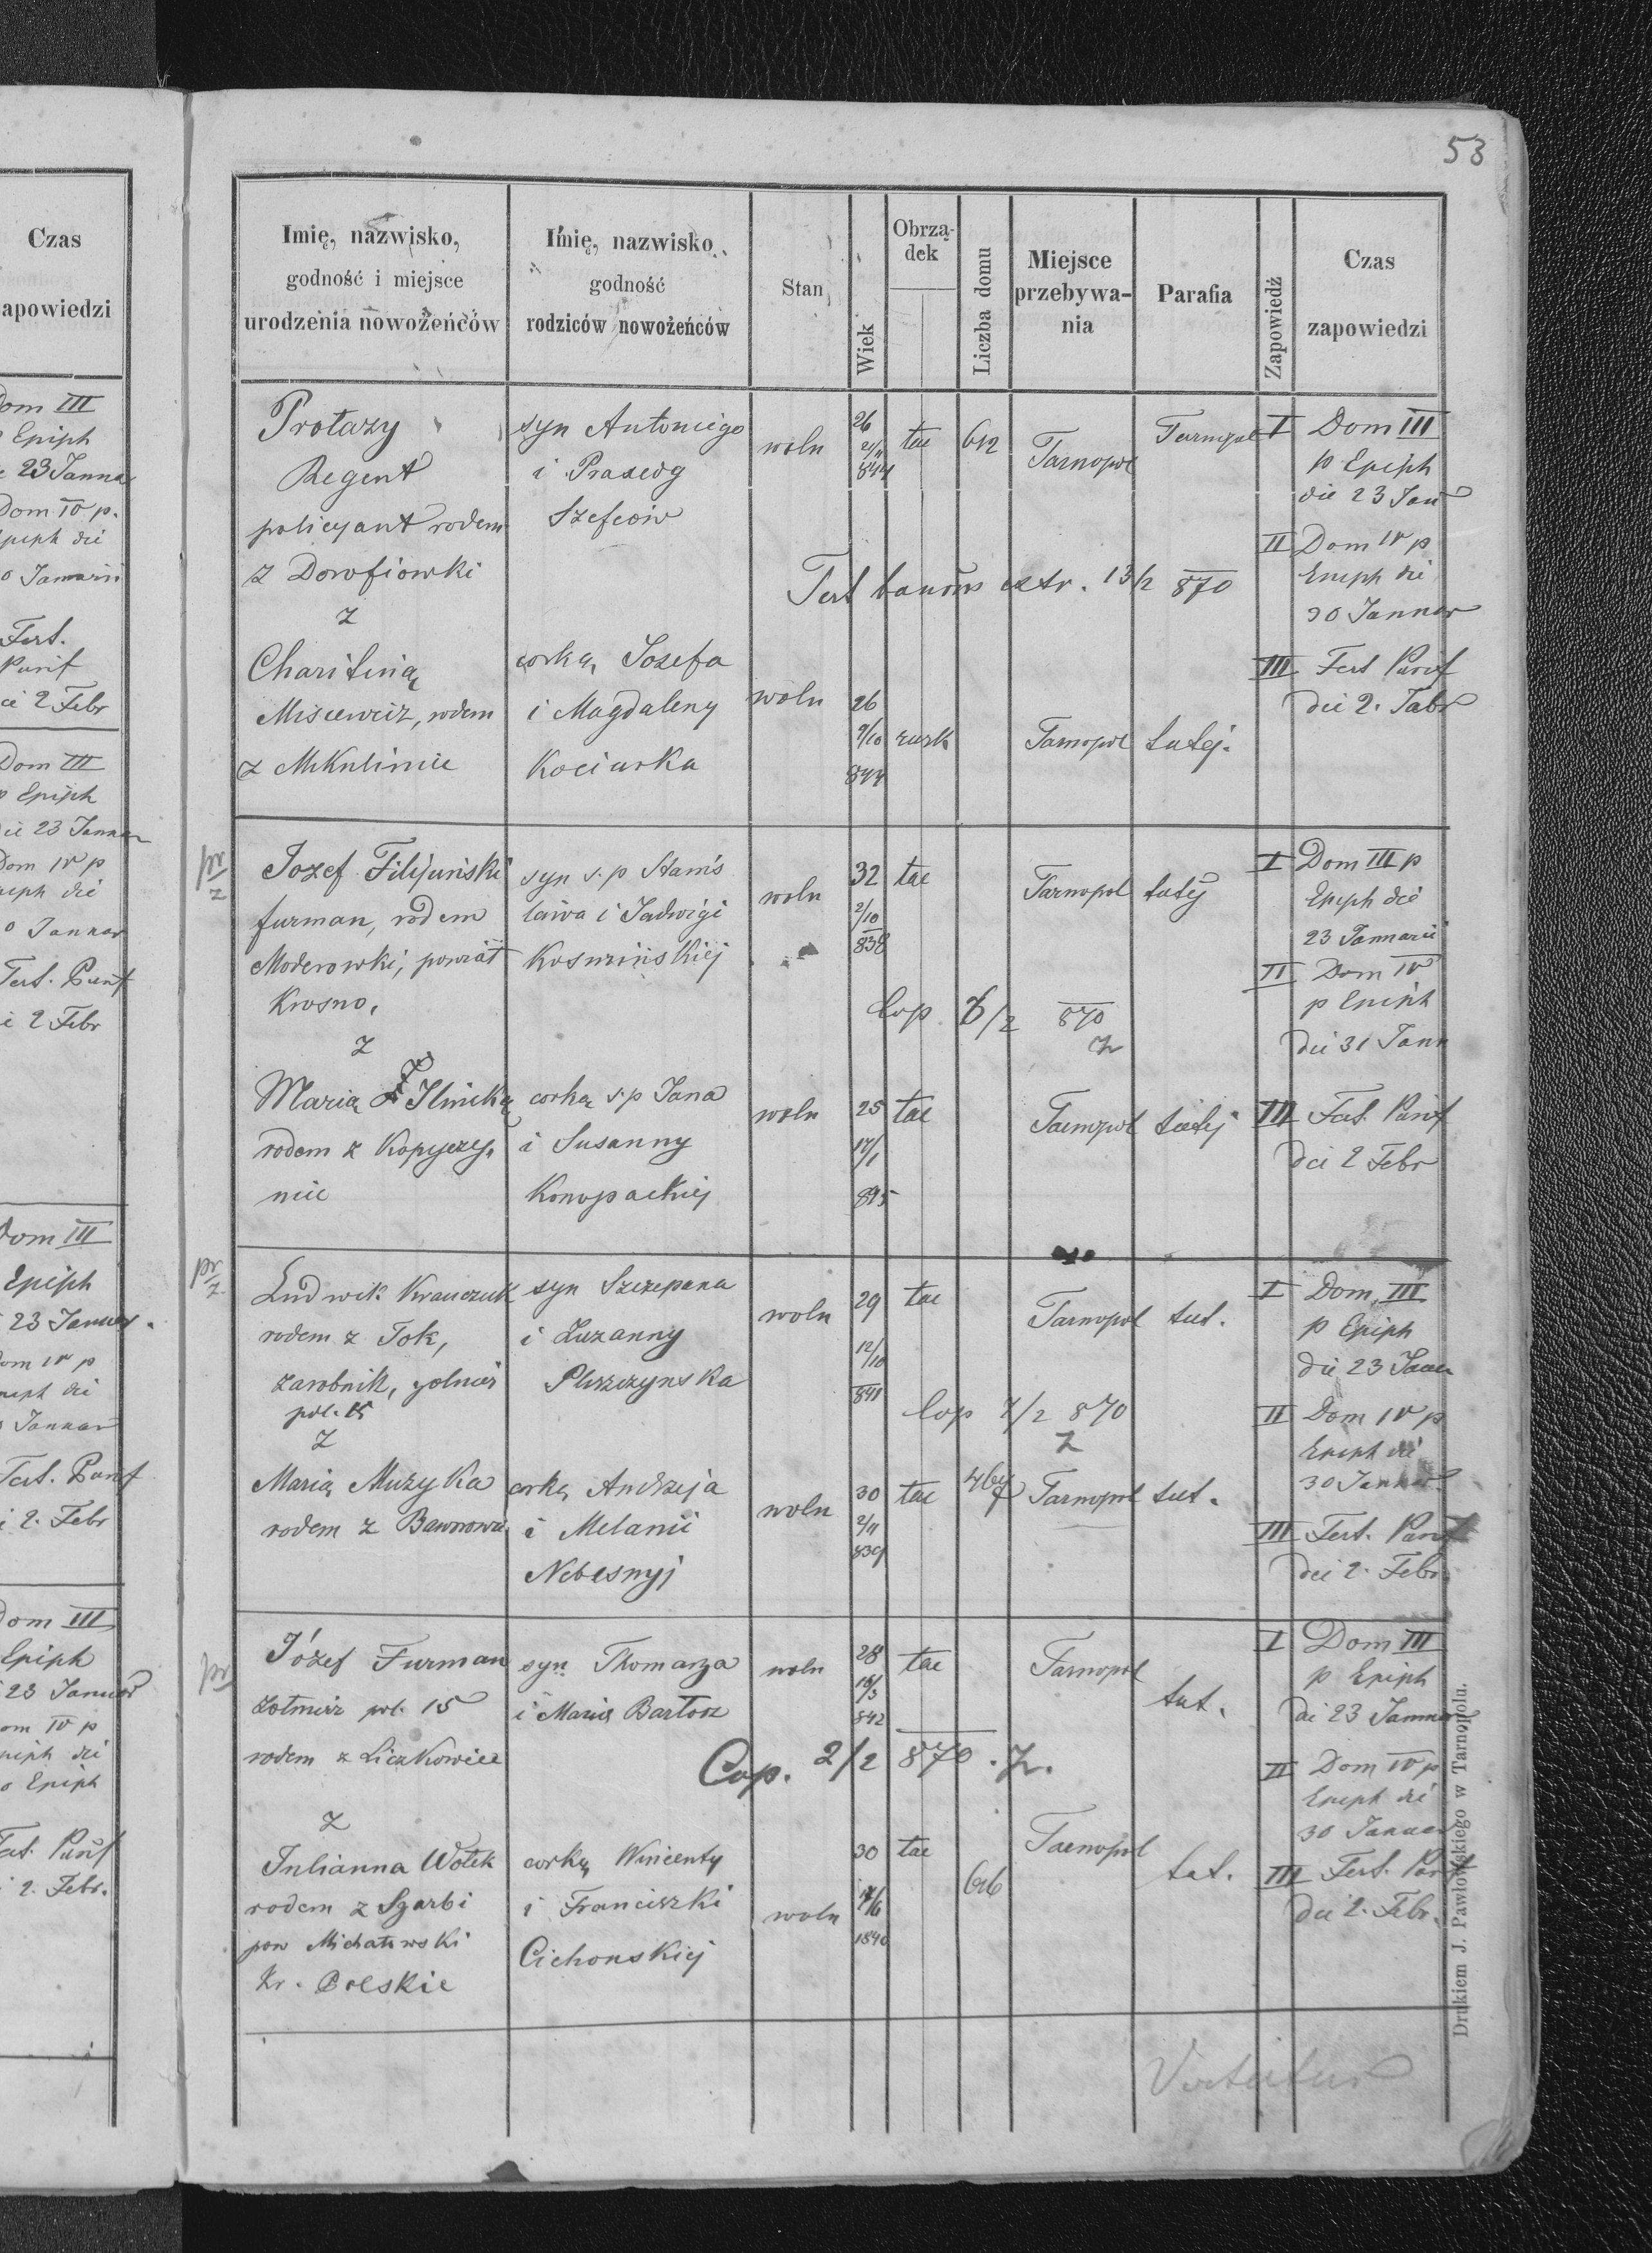 53
Czas
zapowiedzi
Dom III
Epiph
23 Janna
Dom IV p.
Epiph die
Januarii
Fest.
Purif
2 Febr
Dom III
p Epiph
die 23 Januar
Dom IV p
Epiph die
Januar
Fest. Purif
2 Febr
Dom III
Epiph
23 Januar.
Dom IV p
Epiph die
Januar
Fest. Purif
2. Febr
Dom III
Epiph
23 Januar
Dom IV p
Epiph die
Epiph
Fest. Purif
2. Febr.
Imię, nazwisko,
godność i miejsce
urodzenia nowożeńców
Imię, nazwisko
godność
rodziców nowożeńców
Stan
Wiek
Obrzą-
dek
Liczba domu
Miejsce
przebywa-
nia
Parafia
Zapowiedź
Czas
zapowiedzi
Protazy
Regent
policyant rodem
z Dorofiowki
z
Charitiną
Misiewicz, rodem
z Mikulinie
syn Antoniego
i Praxedy
Szefców
corką Jozefa
i Magdaleny
Kociurka
woln
26
21/11
844
tac
612
Tarnopol
Tarnopol
Test bannor extr. 13/2 870
woln
26
9/10
844
rusk
Tarnopol
tutej.
I Dom III
p Epiph
die 23 Jan
II Dom IV p
Epiph die
30 Januar
III Fest Purif
die 2. Febr
pr
z
Jozef Filipiński
furman, rodem
Moderowki, powiat
Krosno.
z
Marią Ilnicką
rodem z Kopyczy-
nie
syn s.p Stanis
lawa i Jadwigi
Kosmińskiej
corką s.p Jana
i Susanny
Konopackiej
woln
32
2/10
838
tac
Tarnopol
tutej
Cop. 8/2 870
z
woln
25
17/1
845
tac
Tarnopol
tutej
I Dom III p
Epiph die
23 Januarii
II Dom IV
p Epiph
die 31 Jann
III Fest. Purif
die 2 Febr
pr
z
Ludwik Krawczuk
rodem z Tok,
zarobnik, zolnier
pol. 15
z
Marią Muzyka
rodem z
syn Szczepana
i Zuzanny
Pluszczynska
corką Andrzeja
i Melanii
Nebesnyj
woln
29
12/10
841
tac
Tarnopol
tut.
Cop 7/2 870
z
woln
30
2/11
839
tac
Tarnopol
tut.
I Dom III
p Epiph
die 23 Jan
II Dom IV p
Epiph die
30 Januar
III Fest. Purif
die 2. Febr
pr
Józef Furman
żołnierz pol. 15
rodem z Liczkowiec
z
Julianna Wołek
rodem z Szarbi
pow Michałowski
Kr. Polskie
syn Thomasza
i Maria Bartosz
corką Wincenty
i Franciszki
Cichonskiej
woln
28
19/3
842
tac
Tarnopol
tut.
Cop. 2/2 870. z.
woln
30
1840
tac
616
Tarnopol
tut.
I Dom III
p Epiph
die 23 Januar
II Dom IV p
Epiph die
30 Januar
III Fest. Purif
die 2. Febr.
Vertatur
Drukiem J. Pawłowskiego w Tarnopolu.